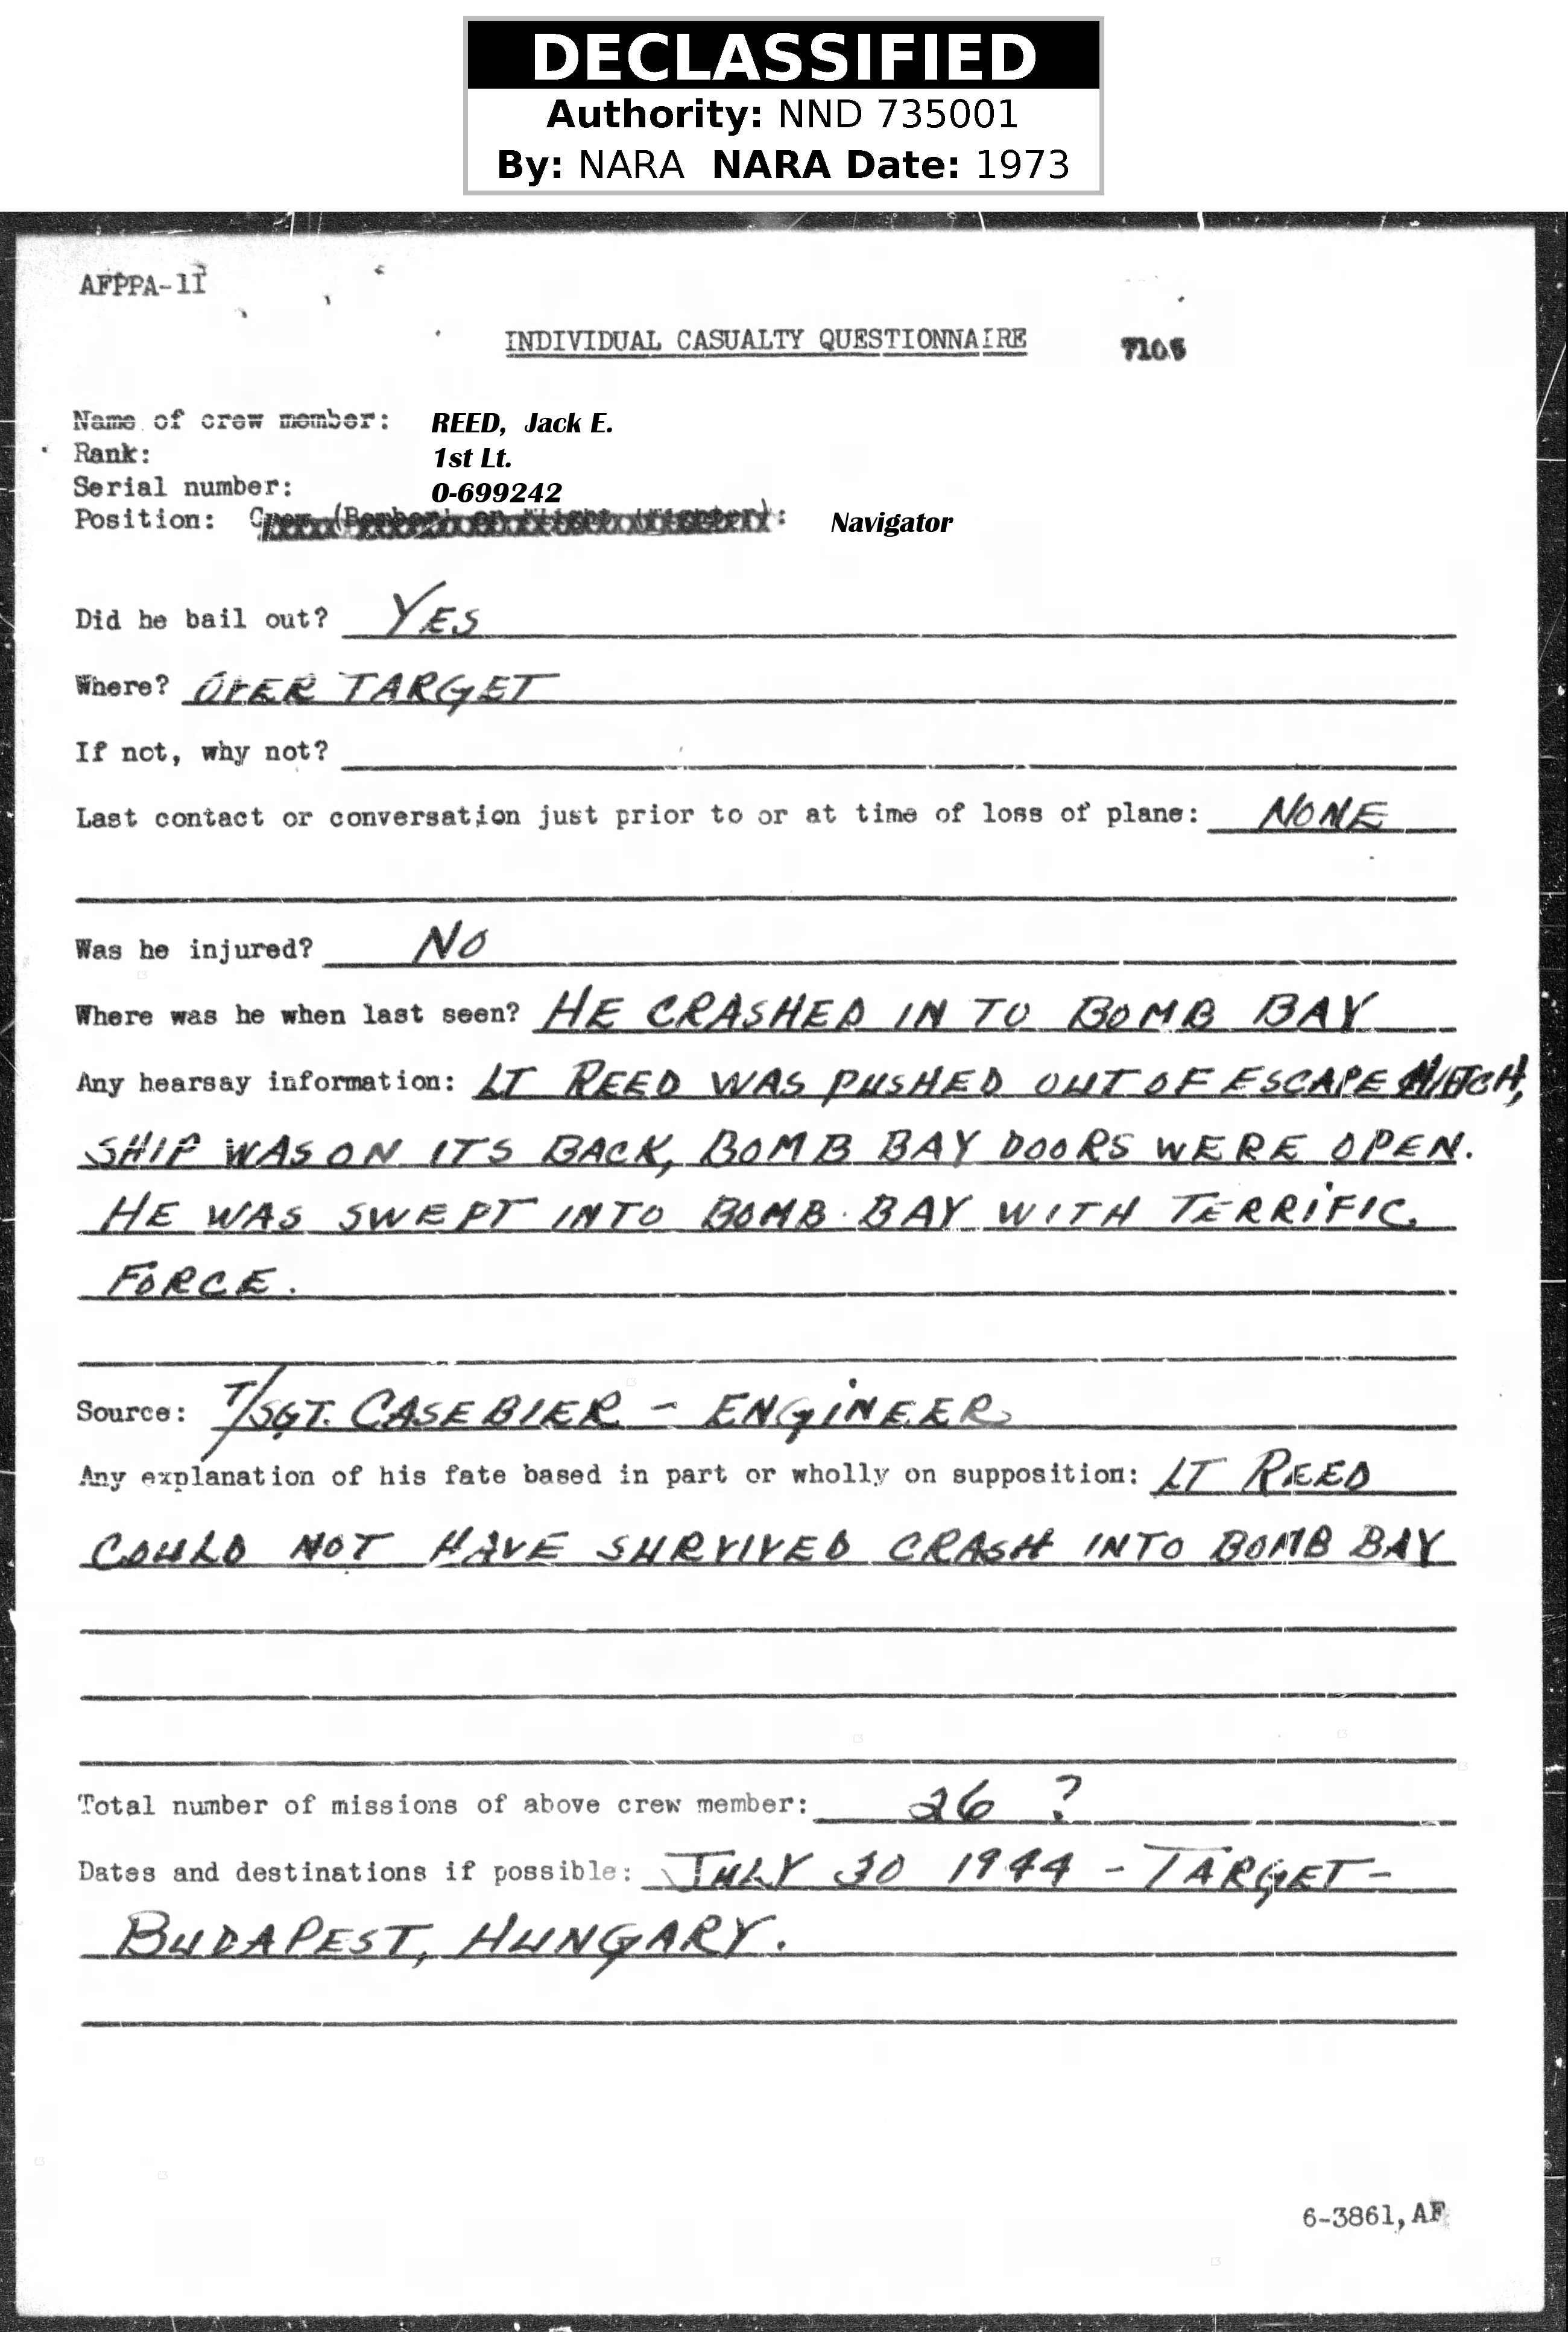 DECLASSIFIED
Authority: NND 735001
By: NARA NARA Date: 1973
AFPPA-11
INDIVIDUAL CASUALTY QUESTIONNAIRE 7105
Name of crew member: REED, Jack E.
Rank: 1st Lt.
Serial number: 0-699242
Position: Crew (Bomber) or Flight (Fighter): Navigator
Did he bail out? YES
Where? OVER TARGET
If not, why not?
Last contact or conversation just prior to or at time of loss of plane: NONE
Was he injured? NO
Where was he when last seen? HE CRASHED IN TO BOMB BAY
Any hearsay information: LT REED WAS PUSHED OUT OF ESCAPE HATCH,
SHIP WAS ON ITS BACK, BOMB BAY DOORS WERE OPEN.
HE WAS SWEPT INTO BOMB BAY WITH TERRIFIC
FORCE.
Source: T/SGT. CASEBIER - ENGINEER
Any explanation of his fate based in part or wholly on supposition: LT REED
COULD NOT HAVE SURVIVED CRASH INTO BOMB BAY
Total number of missions of above crew member: 26 ?
Dates and destinations if possible: JULY 30 1944 - TARGET -
BUDAPEST, HUNGARY.
6-3861, AF